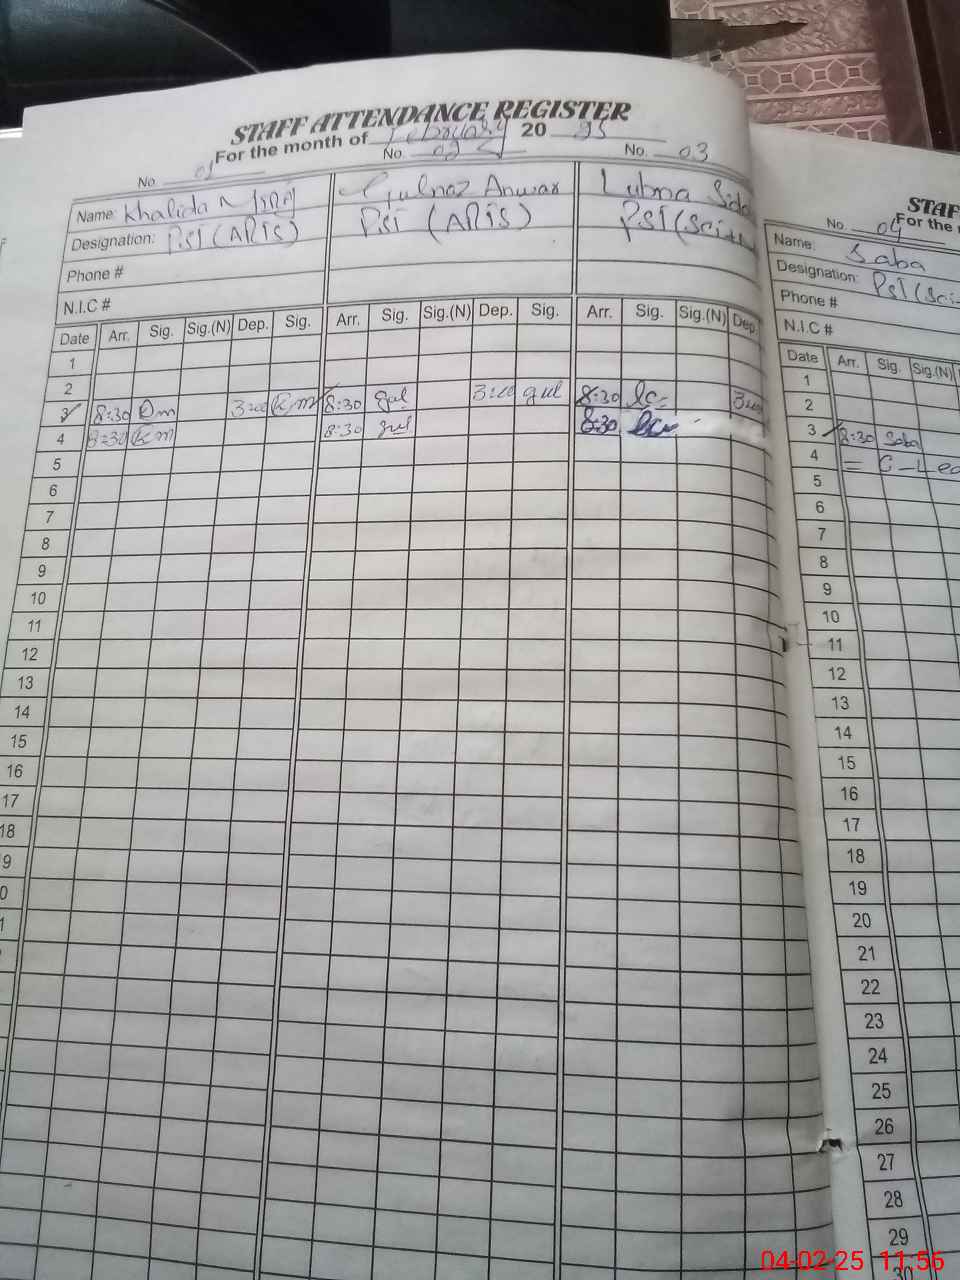 STAFF ATTENDANCE REGISTER
For the month of February 20 25
No. 01 No. 02 No. 03
Name: Khalida Gulnaz Anwar Lubna
Designation: PST (ARTS) PST (ARTS) PST (Sci
Phone #
N.I.C #
Date Arr. Sig. Sig.(N) Dep. Sig. Arr. Sig. Sig.(N) Dep. Sig. Arr. Sig. Sig.(N) Dep.
1
2
3 8:30 3:00 Km 8:30 gul 3:00 gul 8:30 3:00
4 8:30 Km 8:30 gul 8:30
5
6
7
8
9
10
11
12
13
14
15
16
17
18
9
0
1
STAF
No. 04 For the
Name: Saba
Designation: PST (Sci-
Phone #
N.I.C #
Date Arr. Sig. Sig.(N)
1
2
3 8:30 Saba
4 = C-Lea
5
6
7
8
9
10
11
12
13
14
15
16
17
18
19
20
21
22
23
24
25
26
27
28
29
30
04-02-25 11:56